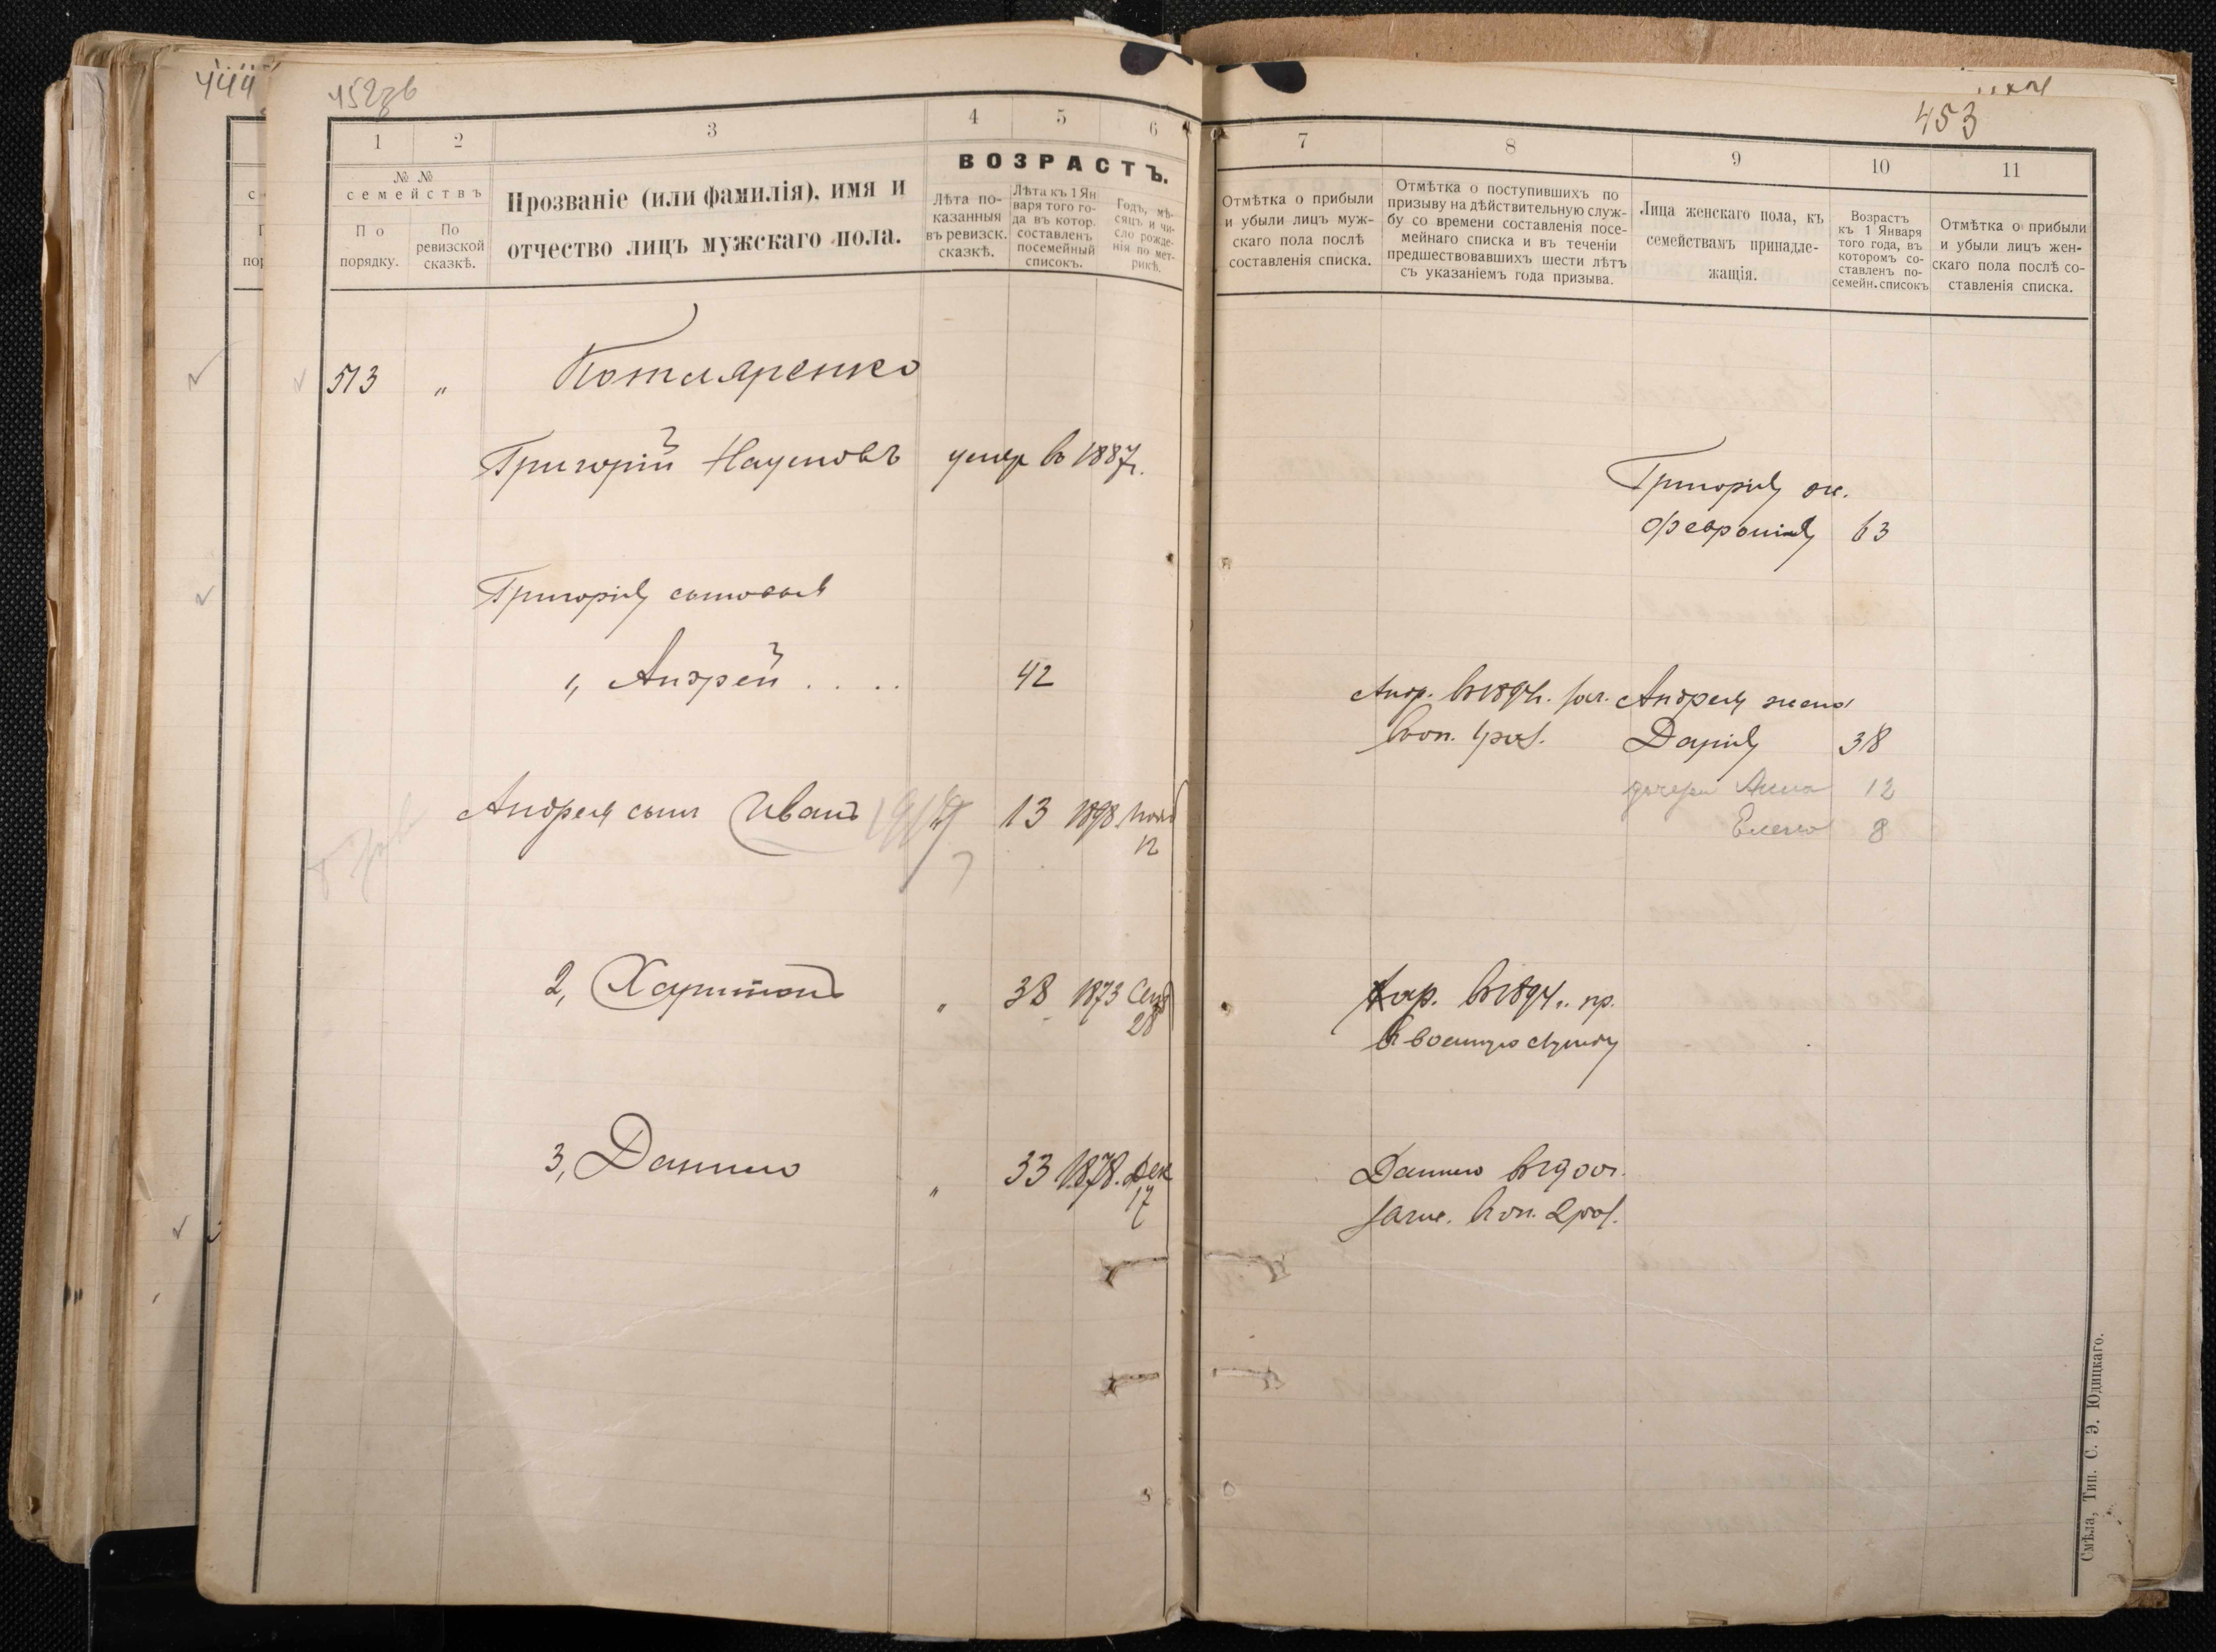 444
452зв
1
2
3
4
5
6
№ №
семействъ
По порядку.
По ревизской сказкѣ.
Прозваніе (или фамилія), имя и
отчество лицъ мужскаго пола.
ВОЗРАСТЪ.
Лѣта по-
казанныя
въ ревизск.
сказкѣ.
Лѣта къ 1 Ян
варя того го-
да въ котор.
составленъ
посемейный
списокъ.
Годъ, мѣ-
сяцъ и чи-
сло рожде-
нія по мет-
рикѣ.
513 „ Котляренко
Григорій Наумовъ умер въ 1887г.
Григорія сыновья
1, Андрей . . . . 42
Андрея сынъ Иванъ 1919 13 1898 Нояб
12
2, Харитонъ „ 38 1873 Сен
28
3, Данило „ 33 1878. Дек
17
453
7
8
9
10
11
Отмѣтка о прибыли
и убыли лицъ муж-
скаго пола послѣ
составленія списка.
Отмѣтка о поступившихъ по
призыву на дѣйствительную служ-
бу со времени составленія посе-
мейнаго списка и въ теченіи
предшествовавшихъ шести лѣтъ
съ указаніемъ года призыва.
Лица женскаго пола, къ
семействамъ принадле-
жащія.
Возрастъ
къ 1 Января
того года, въ
которомъ со-
ставленъ по-
семейн. списокъ
Отмѣтка о прибыли
и убыли лицъ жен-
скаго пола послѣ со-
ставленія списка.
Григорія ж.
Февронія 63
Андр. в 189 г. зач. Андрея жена
в оп. 1 раз. Дарія 38
дочери Анна 12
Елена 8
Хар. въ 1894 г. пр.
в военную службу
Данило в 1900 г.
зачис. в оп. 2 раз.
Смѣла, Тип. С. Э. Юдицкаго.